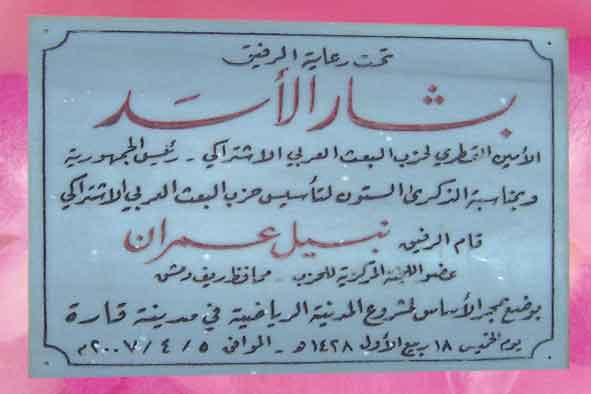 تحت رعاية الرفيق
بشار الأسد
الأمين القطري لحزب البعث العربي الاشتراكي - رئيس الجمهورية
وبمناسبة الذكرى الستون لتأسيس حزب البعث العربي الاشتراكي
قام الرفيق نبيل عمران
عضو اللجنة المركزية للحزب - محافظ ريف دمشق
بوضع حجر الأساس لمشروع المدينة الرياضية في مدينة قارة
يوم الخميس ١٨ ربيع الأول ١٤٢٨هـ - الموافق ٥ / ٤ / ٢٠٠٧م